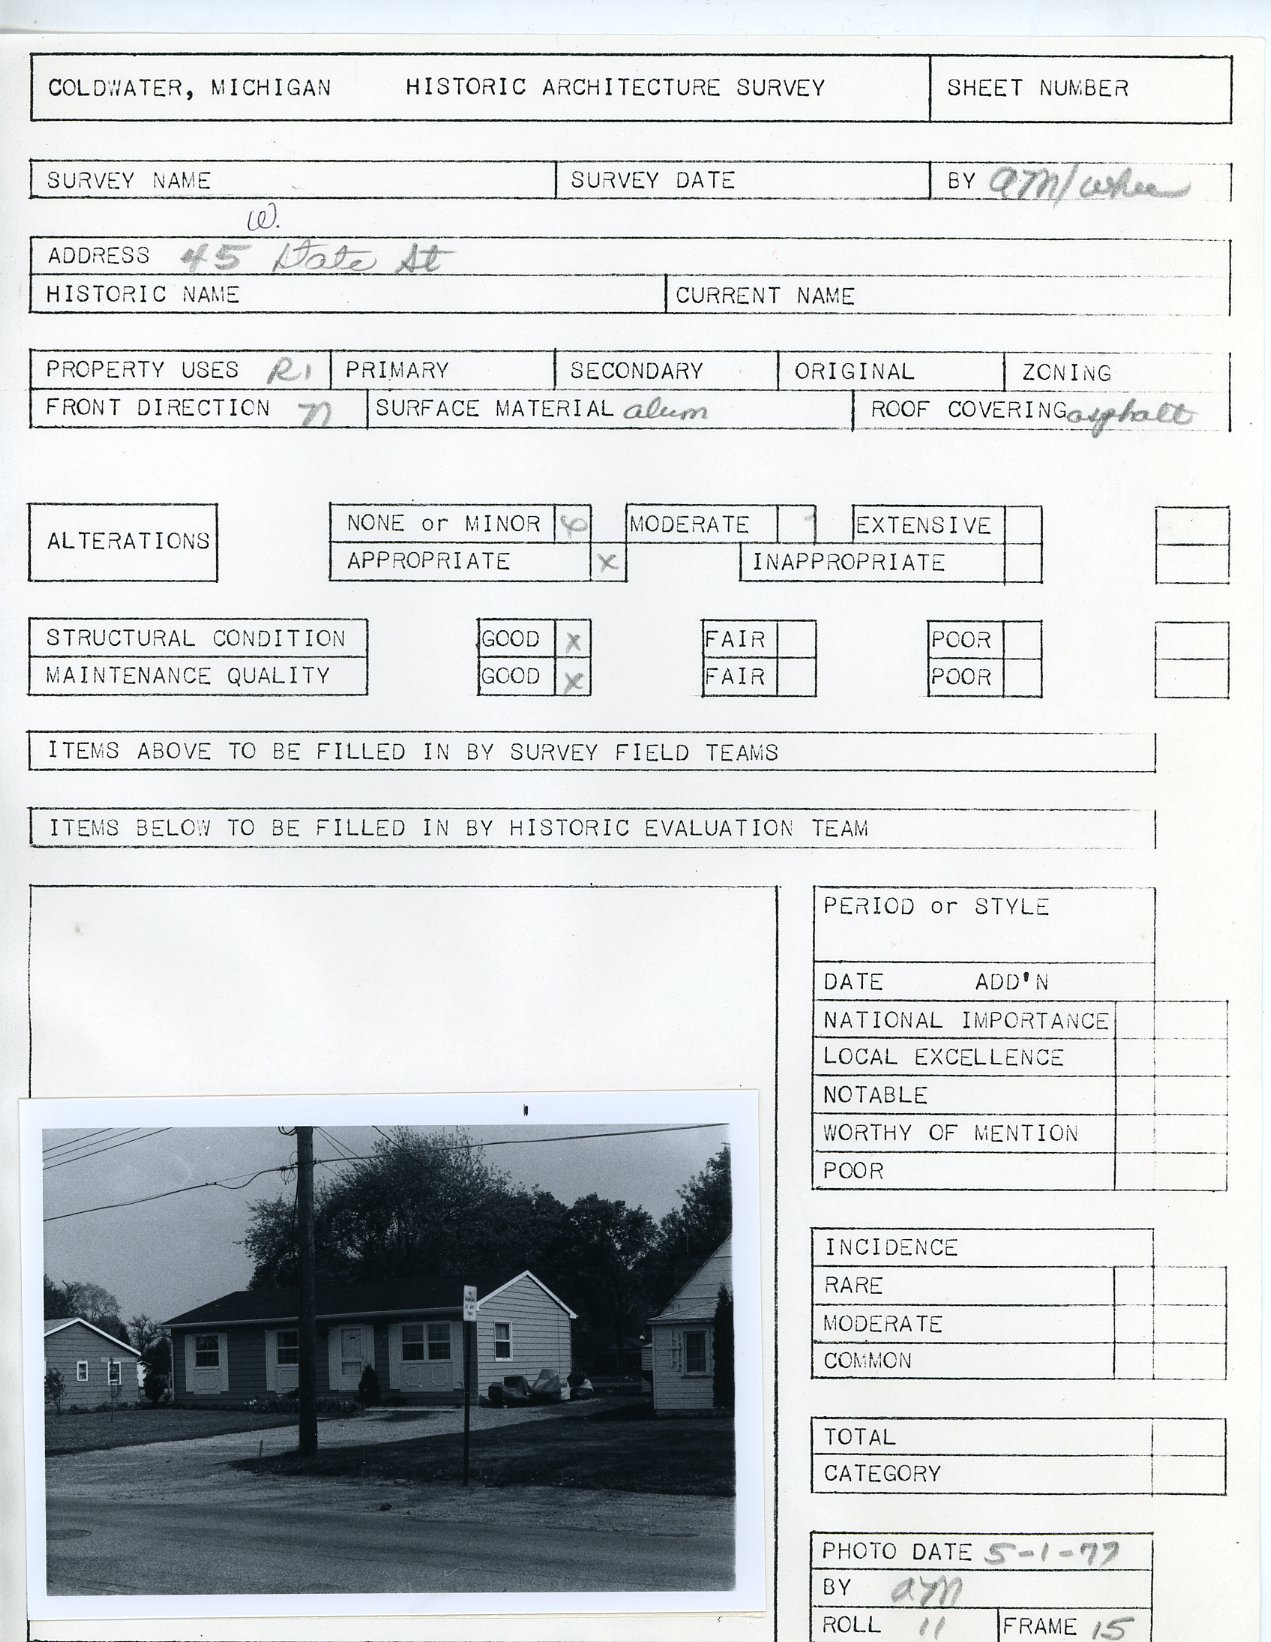 COLDWATER, MICHIGAN HISTORIC ARCHITECTURE SURVEY SHEET NUMBER
SURVEY NAME SURVEY DATE BY AM/
W.
ADDRESS 45 State St
HISTORIC NAME CURRENT NAME
PROPERTY USES R1 PRIMARY SECONDARY ORIGINAL ZONING
FRONT DIRECTION n SURFACE MATERIAL alum ROOF COVERING asphalt
ALTERATIONS
NONE or MINOR x MODERATE EXTENSIVE
APPROPRIATE x INAPPROPRIATE
STRUCTURAL CONDITION GOOD x FAIR POOR
MAINTENANCE QUALITY GOOD x FAIR POOR
ITEMS ABOVE TO BE FILLED IN BY SURVEY FIELD TEAMS
ITEMS BELOW TO BE FILLED IN BY HISTORIC EVALUATION TEAM
PERIOD or STYLE
DATE ADD'N
NATIONAL IMPORTANCE
LOCAL EXCELLENCE
NOTABLE
WORTHY OF MENTION
POOR
INCIDENCE
RARE
MODERATE
COMMON
TOTAL
CATEGORY
PHOTO DATE 5-1-77
BY AM
ROLL 11 FRAME 15